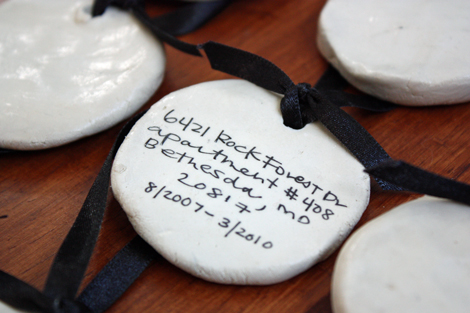 6421 Rock Forest Dr
apartment #408
Bethesda, MD
20817,
8/2007-3/2010